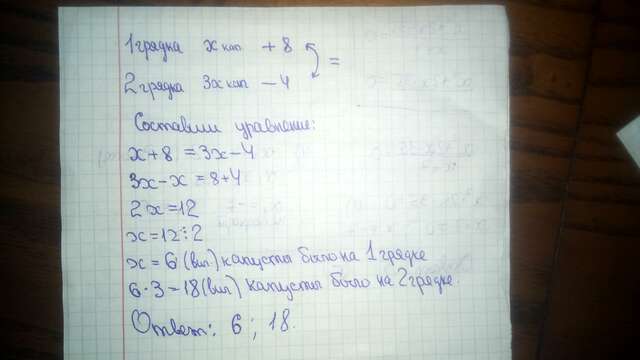 1 грядка х кап + 8
=
2 грядка 3х кап — 4
Составим уравнение:
х + 8 = 3х – 4
3х – х = 8 + 4
2х = 12
х = 12 : 2
х = 6 (вил) капусты было на 1 грядке
6 · 3 = 18 (вил) капусты было на 2 грядке.
Ответ: 6 ; 18.